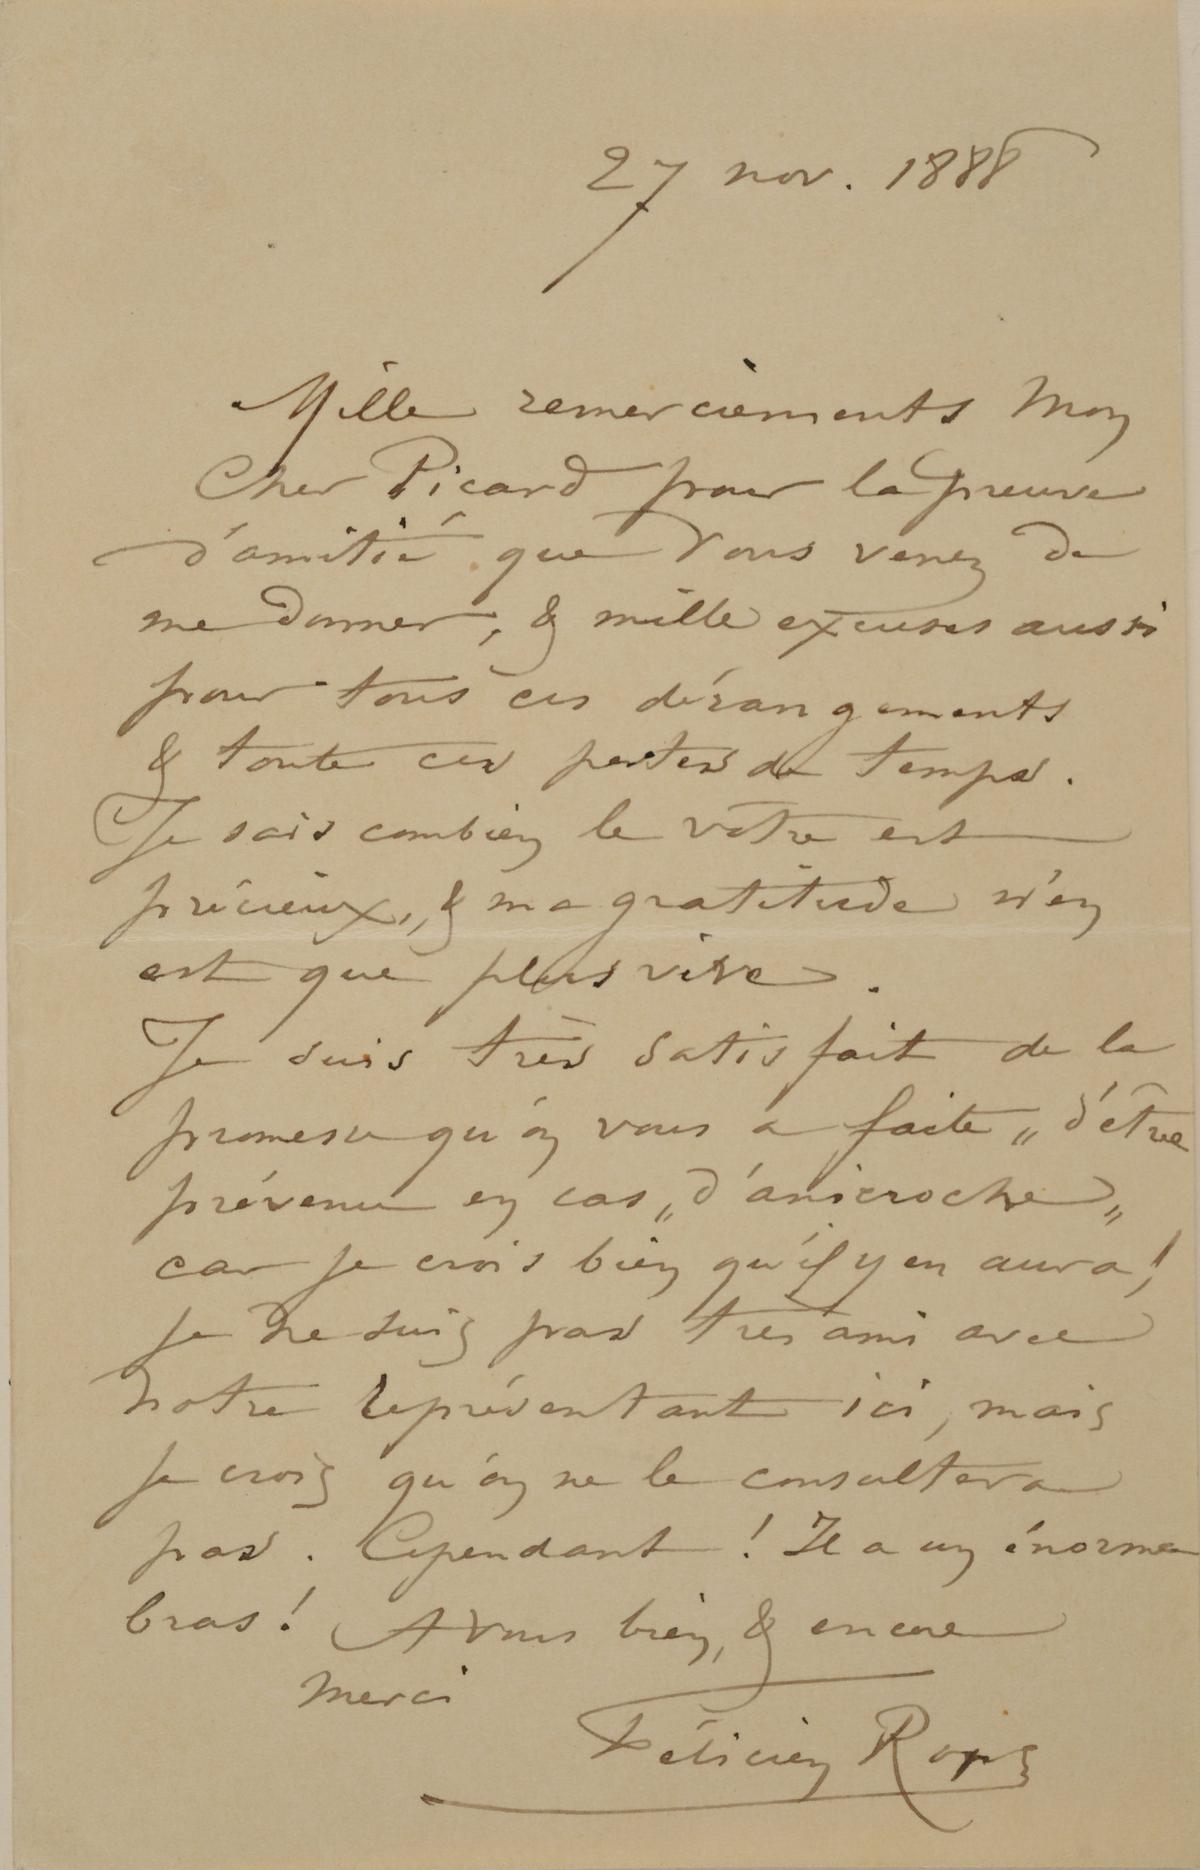 27 nov. 1888
Mille remerciements Mon
Cher Picard pour la preuve
d'amitié que Vous venez de
me donner, & mille excuses aussi
pour tous ces dérangements
& toute ces pertes de temps.
Je sais combien le vôtre est
précieux, & ma gratitude n'en
est que plus vive.
Je suis très satisfait de la
promesse qu'on vous a faite „ d'être
prévenu en cas „ d'anicroche „
car je crois bien qu'il y en aura !
je ne suis pas très ami avec
notre représentant ici, mais
je crois qu'on ne le consultera
pas. Cependant ! Il a un énorme
bras ! A Vous bien, & encore
merci
Félicien Rops